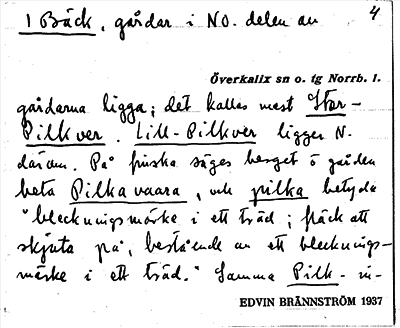 1 Bäck, gårdar i N.O. delen av
4
Överkalix sn o. tg Norrb. l.
gårdarna ligga; det kallas mest Stor-
Pilkver. Lill-Pilkver ligger N.
därom. På finska säges berget o gården
heta Pilkavaara, och pilka betyda
"bleckningsmärke i ett träd; fläck att
skjuta på, bestående av ett blecknings-
märke i ett träd." Samma Pilk- in-
EDVIN BRÄNNSTRÖM 1937